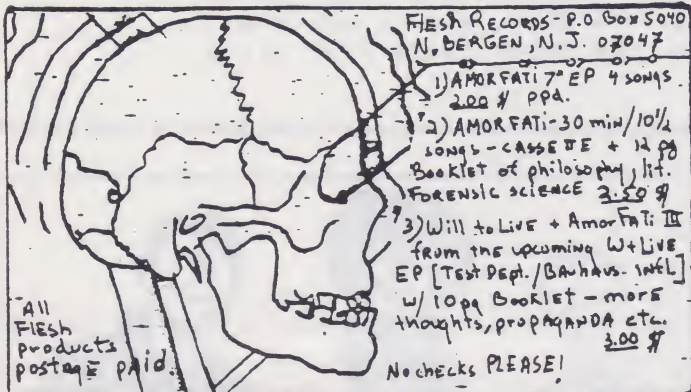 FLESH RECORDS - P.O BOX 5040
N. BERGEN, N.J. 07047
1) AMOR FATI 7" EP 4 SONGS
2.00 $ ppd.
2) AMOR FATI - 30 min/10½
songs - CASSETTE + 12 pg
Booklet of philosophy, lit.
FORENSIC SCIENCE 2.50 $
3) Will to Live + Amor Fati III
from the upcoming W+Live
EP [Test Dept./Bauhaus. Infl]
w/ 10 pg Booklet - more
thoughts, propaganda etc.
3.00 $
No checks PLEASE!
All
Flesh
products
postage paid.